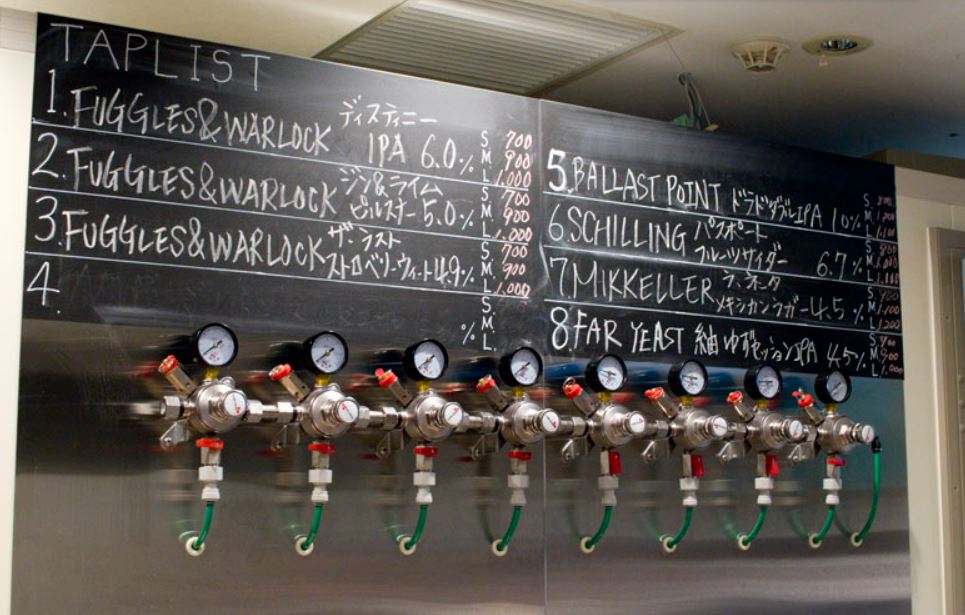 TAPLIST
1. FUGGLES&WARLOCK ディスティニー
IPA 6.0% S. 700
M. 900
L. 1,000
2. FUGGLES&WARLOCK ジン&ライム
ピルスナー 5.0% S. 700
M. 900
L. 1,000
3. FUGGLES&WARLOCK ザ・ラスト
ストロベリーウィート 4.9% S. 700
M. 900
L. 1,000
4.
% S.
M.
L.
5. BALLAST POINT ドラドダブルIPA 10% S.
M.
L.
6. SCHILLING パスポート
フルーツサイダー 6.7% S.
M.
L.
7. MIKKELLER ラ・ネタ
メキシカンラガー 4.5% S.
M. 1,100
L. 1,200
8. FAR YEAST 紬ゆずセッションIPA 4.5% S.
M. 900
L. 1,000